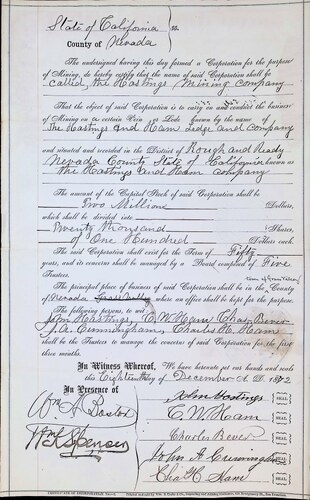 State of California } ss.
County of Nevada
The undersigned having this day formed a Corporation for the purpose
of Mining, do hereby certify that the name of said Corporation shall be
called the Hastings Mining Company
That the object of said Corporation is to carry on and conduct the business
of Mining on a certain Vein or Lode known by the name of
The Hastings and Ham Ledge and Company
and situated and recorded in the District of Rough and Ready
Nevada County State of California known as
the Hastings and Ham Company
The amount of the Capital Stock of said Corporation shall be
Two Million Dollars,
which shall be divided into
Twenty thousand Shares,
of One Hundred Dollars each.
The said Corporation shall exist for the Term of Fifty
years, and its concerns shall be managed by a Board composed of Five
Trustees.
Town of Grass Valley
The principal place of business of said Corporation shall be in the County
of Nevada Grass Valley where an office shall be kept for the purpose.
The following persons, to wit
John Hastings, C. W. Ham, Chas Bever
J. A. Cunningham, Charles H. Ham
shall be the Trustees to manage the concerns of said Corporation for the first
three months.
In Witness Whereof, We have hereunto set our hands and seals
this Eighteenth day of December A. D. 1872
In Presence of
John Hastings SEAL
C. W. Ham SEAL
Charles Bever SEAL
John A Cunningham SEAL
Chas H Ham SEAL